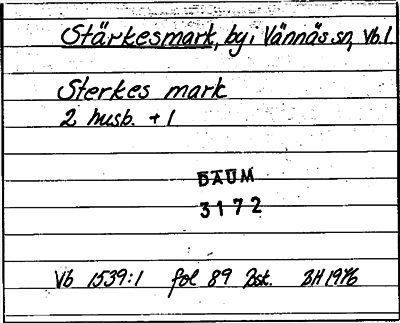 Stärkesmark, by i Vännäs sn, Vb. l
Sterkes mark
2 husb. + 1
DAUM
3172
Vb 1539:1 fol 89 Bsk. BH 1976